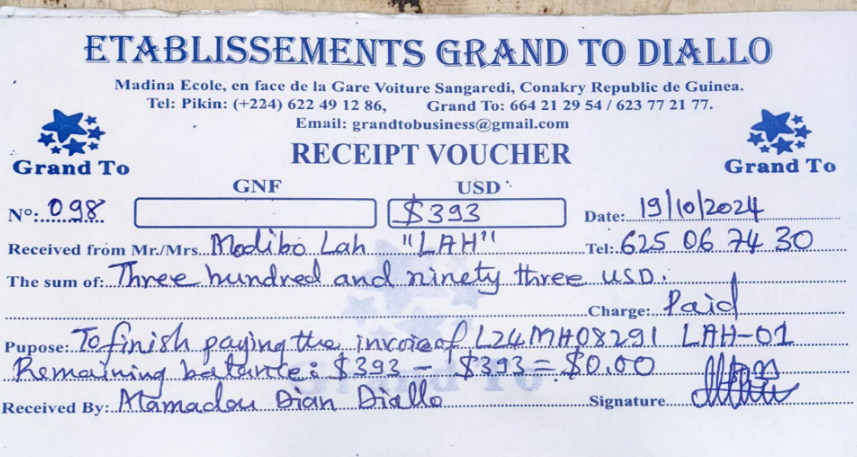 ETABLISSEMENTS GRAND TO DIALLO
Madina Ecole, en face de la Gare Voiture Sangaredi, Conakry Republic de Guinea.
Tel: Pikin: (+224) 622 49 12 86, Grand To: 664 21 29 54 / 623 77 21 77.
Email: grandtobusiness@gmail.com
Grand To RECEIPT VOUCHER Grand To
GNF USD
N°: 098 $393 Date: 19/10/2024
Received from Mr./Mrs. Modibo Lah "LAH" Tel: 625 06 74 30
The sum of: Three hundred and ninety three USD.
Charge: Paid
Pupose: To finish paying the invoice of L24MH08291 LAH-01
Remaining balance: $393 - $393 = $0.00
Received By: Mamadou Dian Diallo Signature